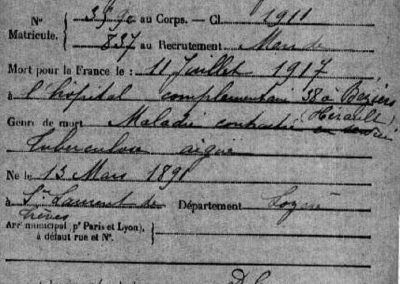 N° 3590 au Corps. — Cl 1911
Matricule. 837 au Recrutement Mende
Mort pour la France le : 11 Juillet 1917
à l'hôpital complémentaire 38 à Béziers
(Hérault)
Genre de mort Maladie contractée en service
Tuberculose aigüe
Né le 13 Mars 1891
à St Laurent de Département Lozère
Trèves
Arrt municipal (pr Paris et Lyon),
à défaut rue et N°.